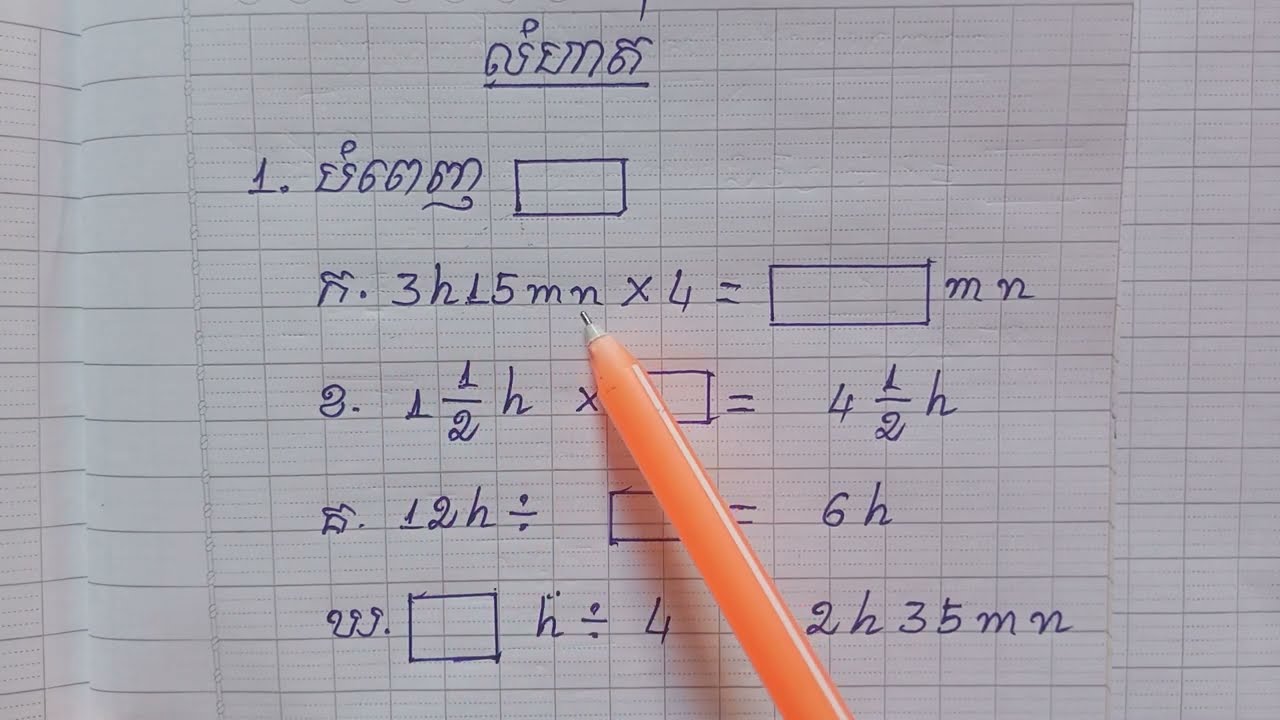 លំហាត់
1. បំពេញ
ក. 3h15mn × 4 = mn
ខ. 1 1/2 h × = 4 1/2 h
គ. 12h ÷ = 6h
ឃ. h ÷ 4 2h35mn